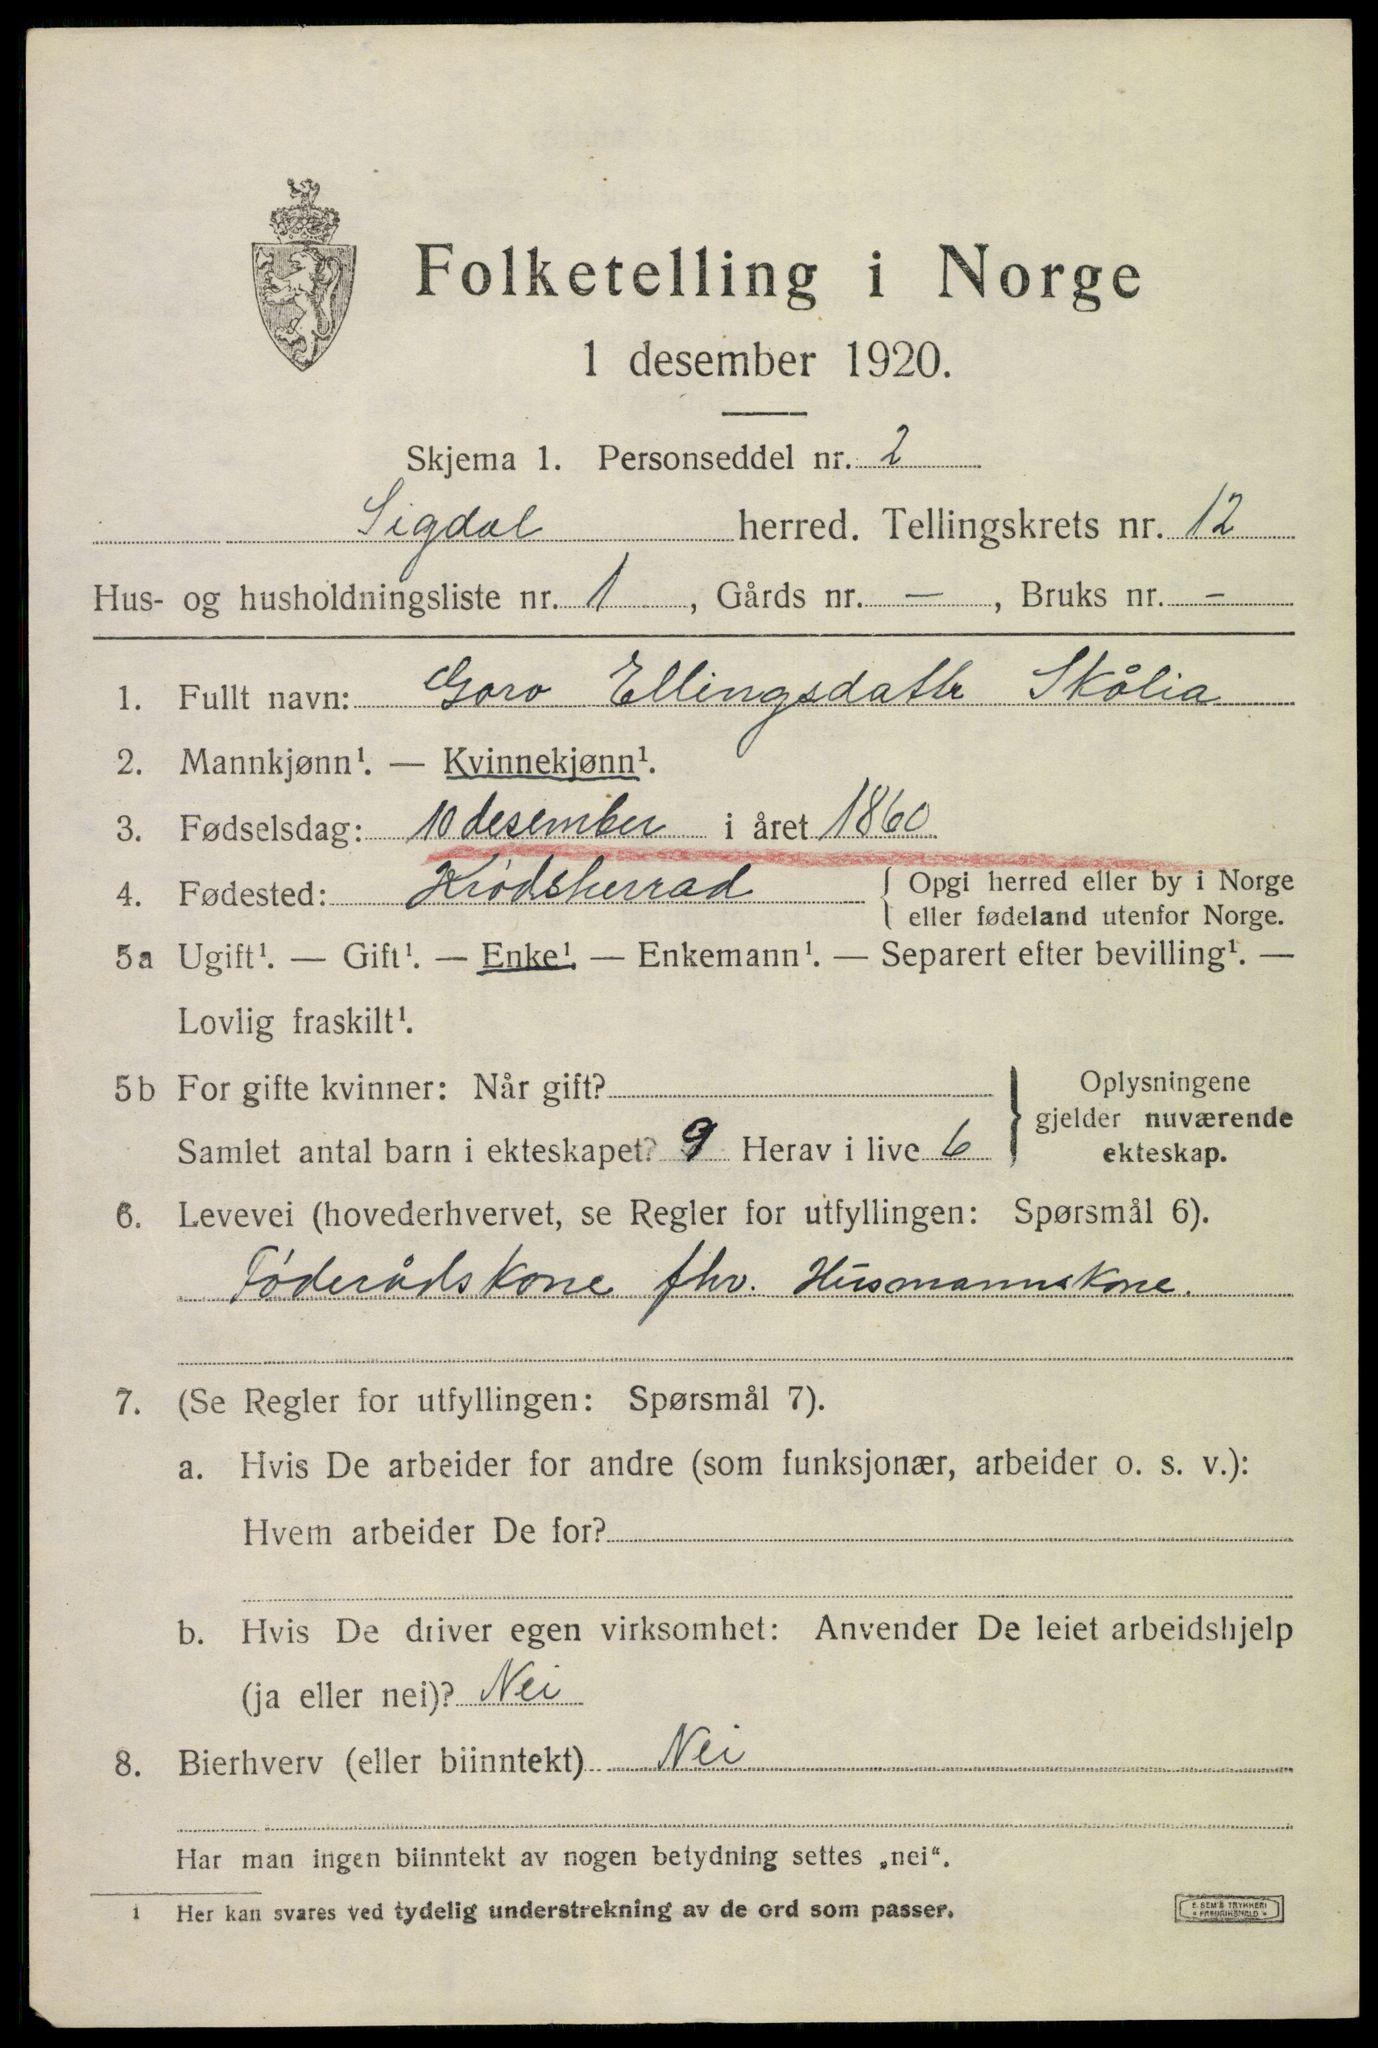 Folketelling i Norge
1 desember 1920.
Skjema 1. Personseddel nr. 2
Sigdal herred. Tellingskrets nr. 12
Hus- og husholdningsliste nr. 1, Gårds nr. —, Bruks nr. -
1. Fullt navn: Goro Ellingsdattr Skålia
2. Mannkjønn¹. — Kvinnekjønn¹.
3. Fødselsdag: 10 desember i året 1860
4. Fødested: Krødsherrad { Opgi herred eller by i Norge
eller fødeland utenfor Norge.
5a Ugift¹. — Gift¹. — Enke¹. — Enkemann¹. — Separert efter bevilling¹. —
Lovlig fraskilt¹.
5b For gifte kvinner: Når gift?
Samlet antal barn i ekteskapet? 9 Herav i live 6
} Oplysningene
gjelder nuværende
ekteskap.
6. Levevei (hovederhvervet, se Regler for utfyllingen: Spørsmål 6).
Føderådskone fhv. Husmannskone.
7. (Se Regler for utfyllingen: Spørsmål 7).
a. Hvis De arbeider for andre (som funksjonær, arbeider o. s. v.):
Hvem arbeider De for?
b. Hvis De driver egen virksomhet: Anvender De leiet arbeidshjelp
(ja eller nei)? Nei
8. Bierhverv (eller biinntekt) Nei
Har man ingen biinntekt av nogen betydning settes „nei“.
1 Her kan svares ved tydelig understrekning av de ord som passer.
E. SEM'S TRYKKERI
FREDRIKSHALD